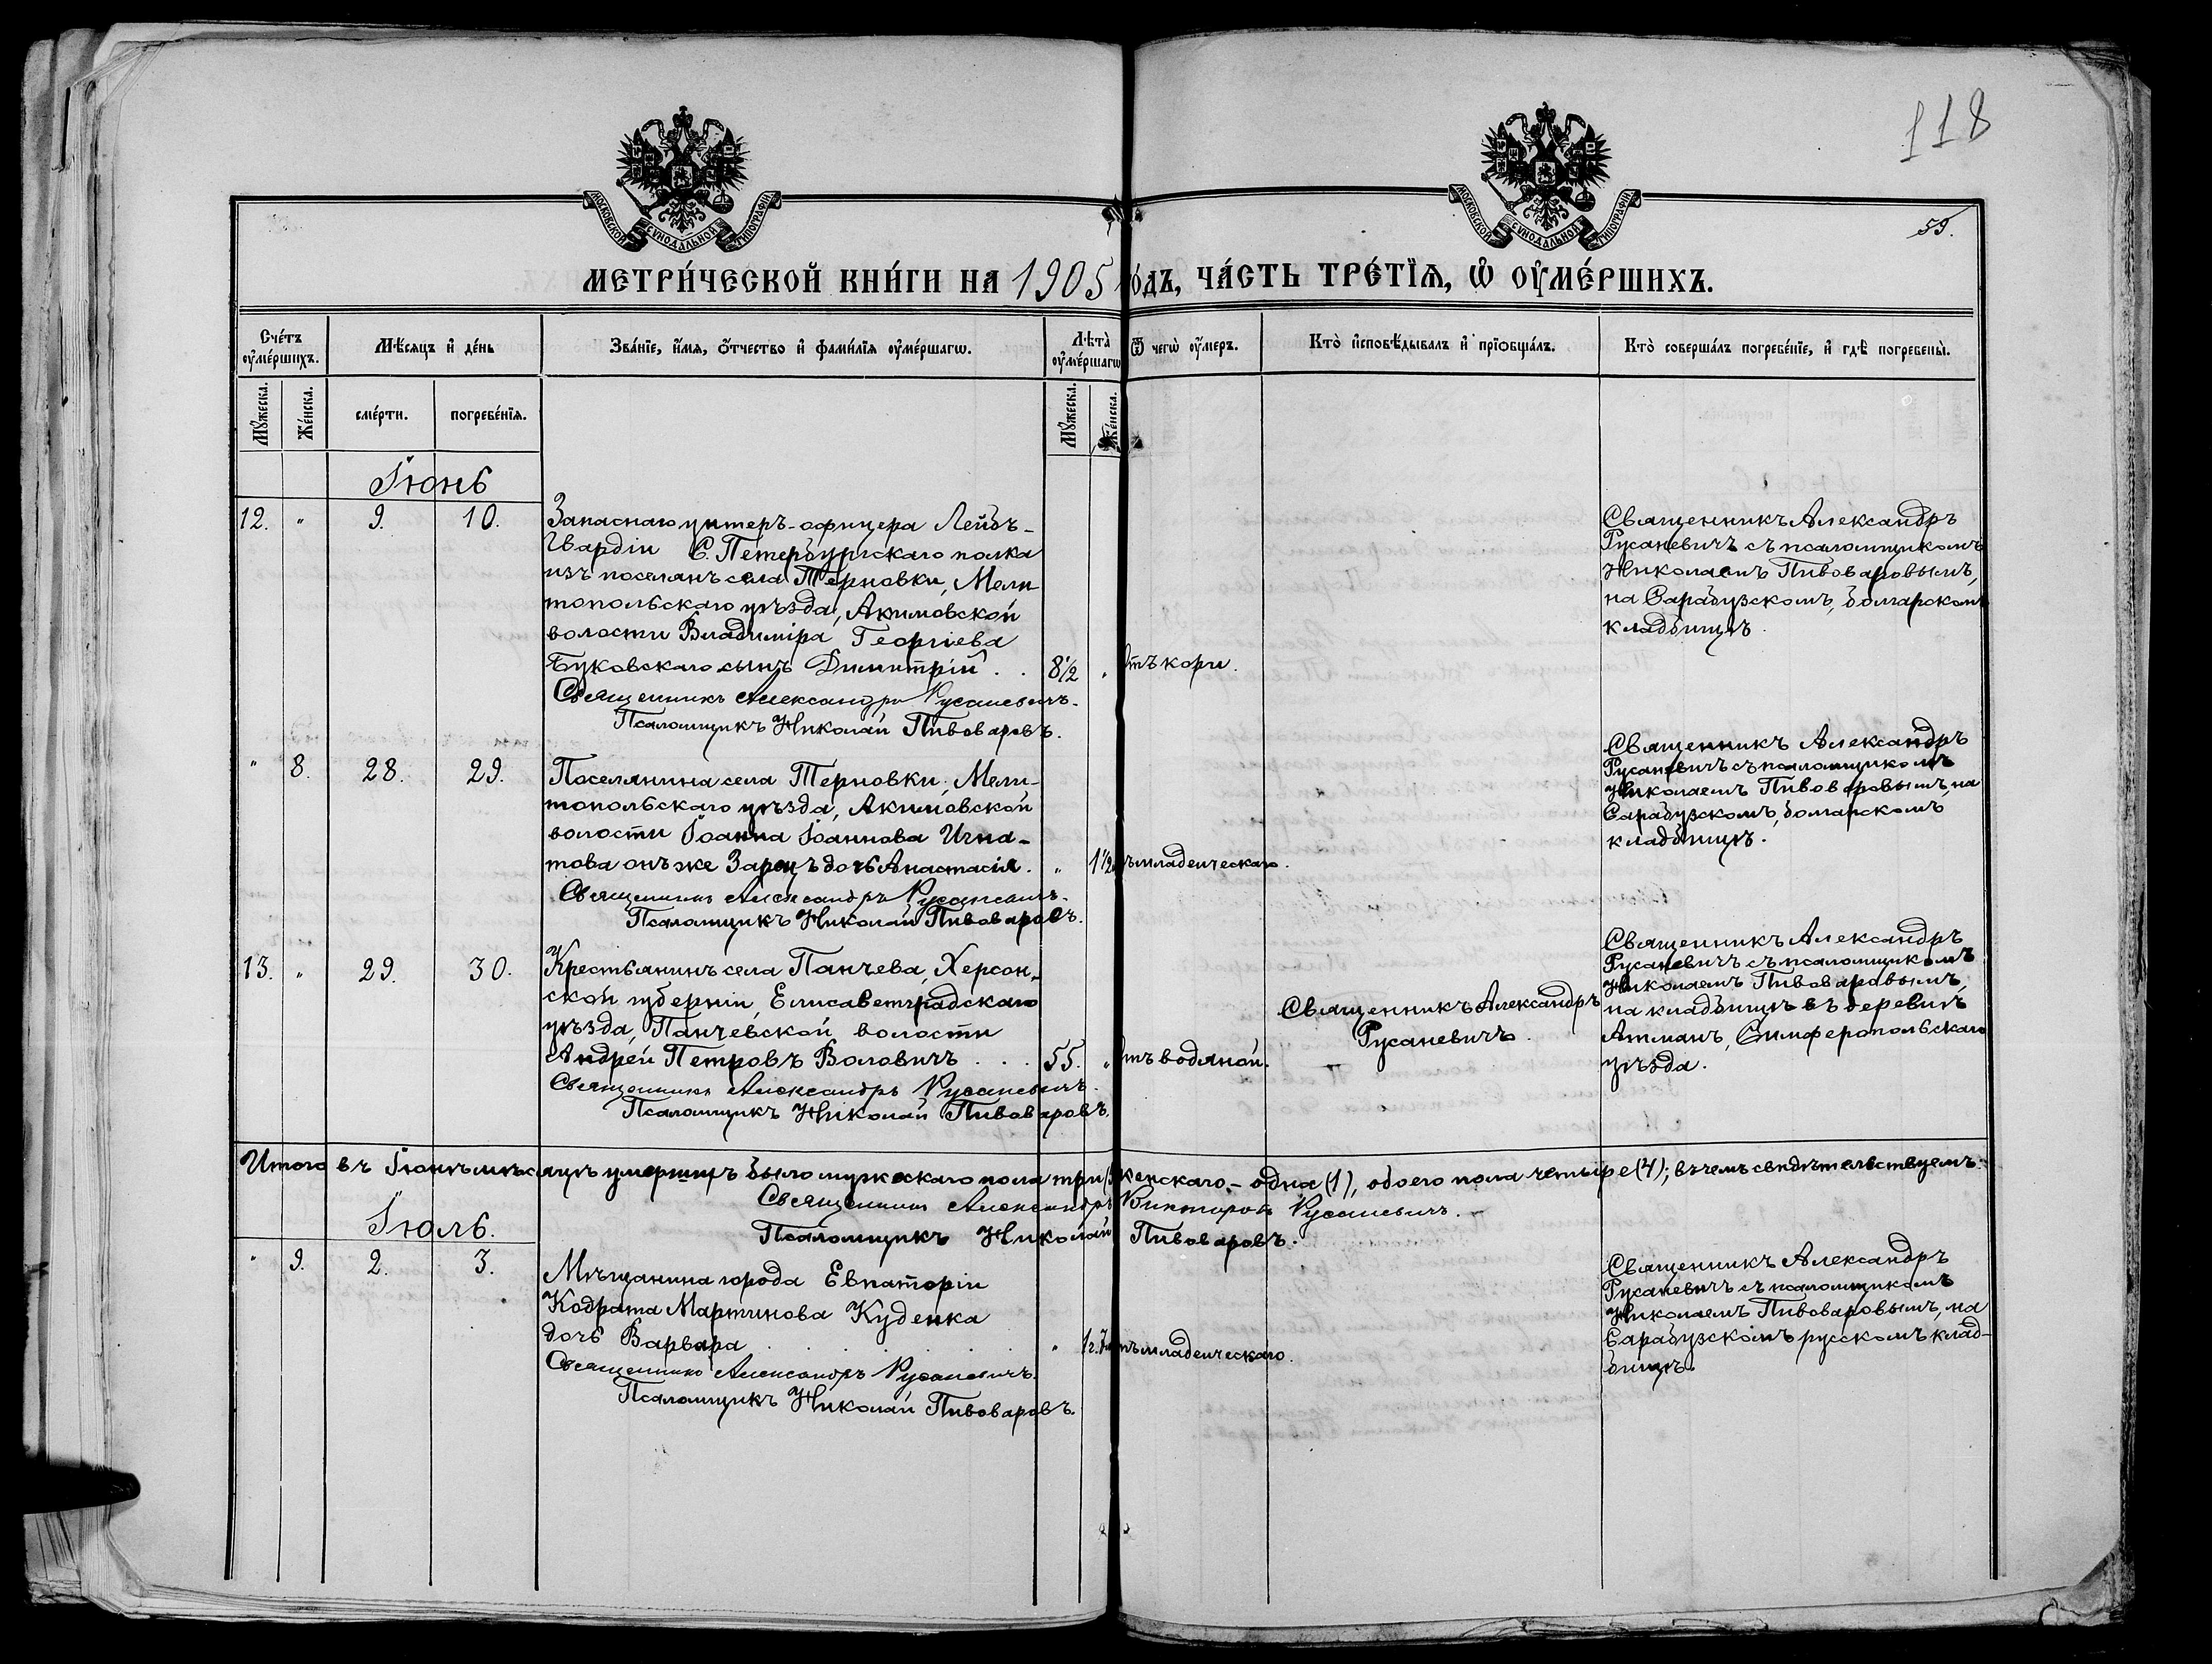 118
59.
МОСКОВСКОЙ СУНОДАЛЬНОЙ ТИПОГРАФІИ
МОСКОВСКОЙ СУНОДАЛЬНОЙ ТИПОГРАФІИ
МЕТРИ́ЧЕСКОЙ КНИ́ГИ НА 1905 го́дъ, ЧА́СТЬ ТРЕ́ТЇѦ, Ѡ҆ ОУ҆МЕ́РШИХЪ.
Сче́тъ оу҆ме́ршихъ.
Мѣ́сяцъ и҆ де́нь
Зва́нїе, и҆́мя, ѻ҆́тчество и҆ фами́лїя оу҆ме́ршагѡ.
Лѣ́та оу҆ме́ршагѡ
Ѿ чегѡ̀ оу҆́меръ.
Кто̀ и҆сповѣ́дывалъ и҆ прїѡбща́лъ.
Кто̀ соверша́лъ погребе́нїе, и҆ гдѣ̀ погребены̀.
Мꙋ́жеска.
Же́нска.
сме́рти.
погребе́нїя.
Мꙋ́жеска.
Же́нска.
Іюнь
12. " 9. 10.
Запаснаго унтеръ-офицера Лейбъ-
Гвардіи С. Петербургскаго полка
изъ поселянъ села Терновки, Мели
топольскаго уѣзда, Акимовской
волости Владиміра Георгіева
Буковскаго сынъ Димитрій . . 8½ " отъ кори.
Священникъ Александръ Русаневичъ.
Псаломщикъ Николай Пивоваровъ.
Священникъ Александръ
Русаневичъ съ псаломщикомъ
Николаемъ Пивоваровымъ,
на Сарабузскомъ, болгарскомъ
кладбищѣ.
" 8. 28. 29.
Поселянина села Терновки, Мели-
топольскаго уѣзда, Акимовской
волости Іоанна Іоаннова Игна-
това онъ же Зарецъ дочь Анастасія. " 1½ отъ младенческаго.
Священникъ Александръ Русаневичъ.
Псаломщикъ Николай Пивоваровъ.
Священникъ Александръ
Русаневичъ съ псаломщикомъ
Николаемъ Пивоваровымъ, на
Сарабузскомъ, болгарскомъ
кладбищѣ.
13. " 29. 30.
Крестьянинъ села Панчева, Херсон-
ской губерніи, Елисаветградскаго
уѣзда, Панчевской волости
Андрей Петровъ Воловичъ . . . 55. " отъ водяной.
Священникъ Александръ Русаневичъ.
Псаломщикъ Николай Пивоваровъ.
Священникъ Александръ
Русаневичъ.
Священникъ Александръ
Русаневичъ съ псаломщикомъ
Николаемъ Пивоваровымъ,
на кладбищѣ въ деревнѣ
Атманъ, Симферопольскаго
уѣзда.
Итого въ Іюнѣ мѣсяцѣ умершихъ было мужескаго пола три (3) женскаго - одна (1), обоего пола четыре (4); въ чемъ свидѣтельствуемъ:
Священникъ Александръ Викторовъ Русаневичъ.
Псаломщикъ Николай Пивоваровъ.
Іюль.
" 9. 2. 3.
Мѣщанина города Евпаторіи
Кодрата Мартинова Куденка
дочь Варвара . . . . . " отъ младенческаго.
Священникъ Александръ Русаневичъ.
Псаломщикъ Николай Пивоваровъ.
Священникъ Александръ
Русаневичъ съ псаломщикомъ
Николаемъ Пивоваровымъ, на
Сарабузскомъ русскомъ клад-
бищѣ.